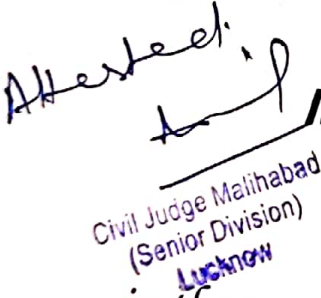 Attested.
Civil Judge Malihabad
(Senior Division)
Lucknow